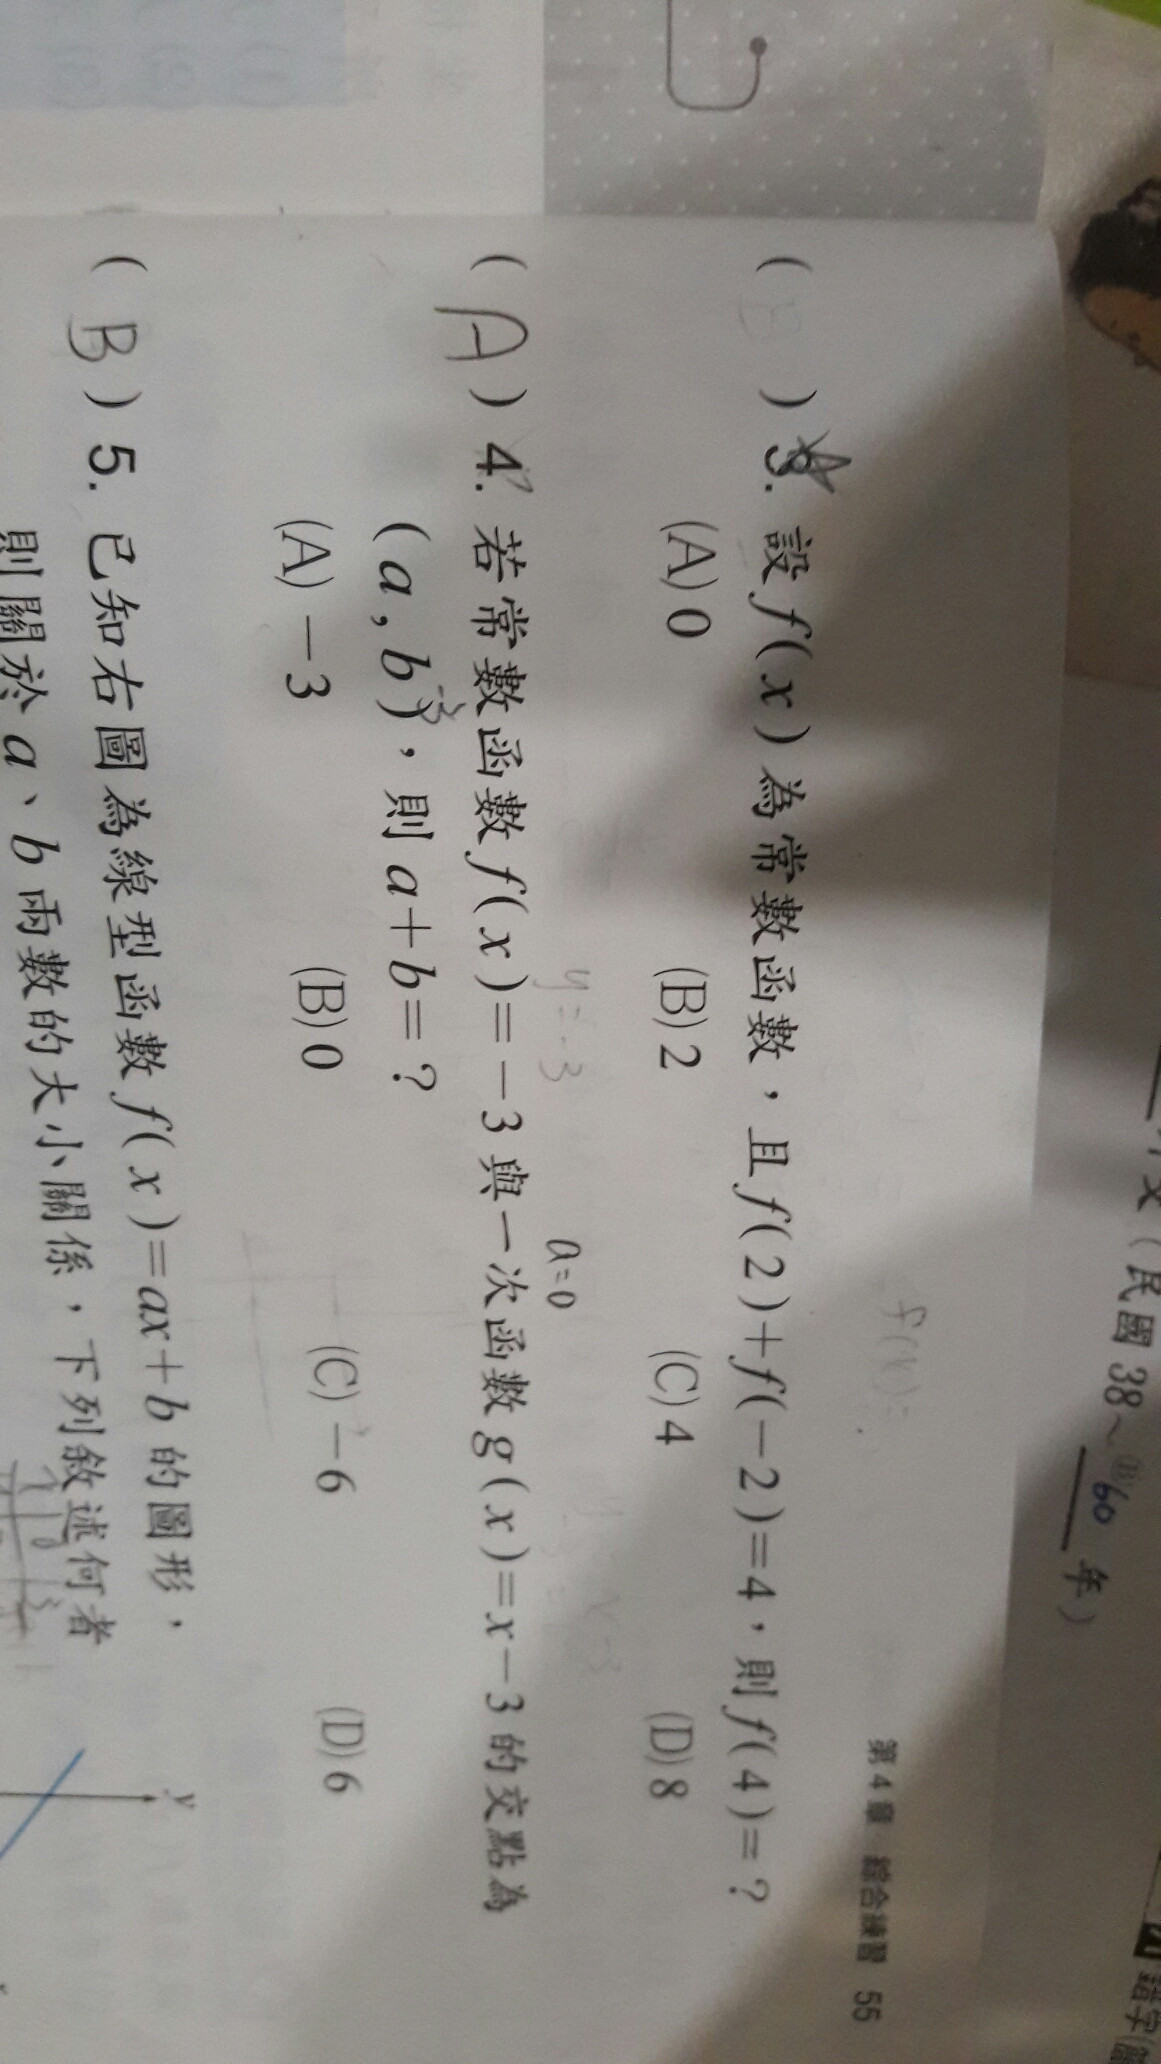 第4章 綜合練習 55
f(x)=
( ) 3. 設 f(x) 為常數函數，且 f(2)+f(−2)=4，則 f(4)=？
(A) 0 (B) 2 (C) 4 (D) 8
y=-3 a=0
( A ) 4. 若常數函數 f(x)=−3 與一次函數 g(x)=x−3 的交點為
(a , b)，則 a+b=？
(A) −3 (B) 0 (C) −6 (D) 6
( B ) 5. 已知右圖為線型函數 f(x)=ax+b 的圖形，
則關於 a、b 兩數的大小關係，下列敘述何者
y
(民國 38~⑬60 年)